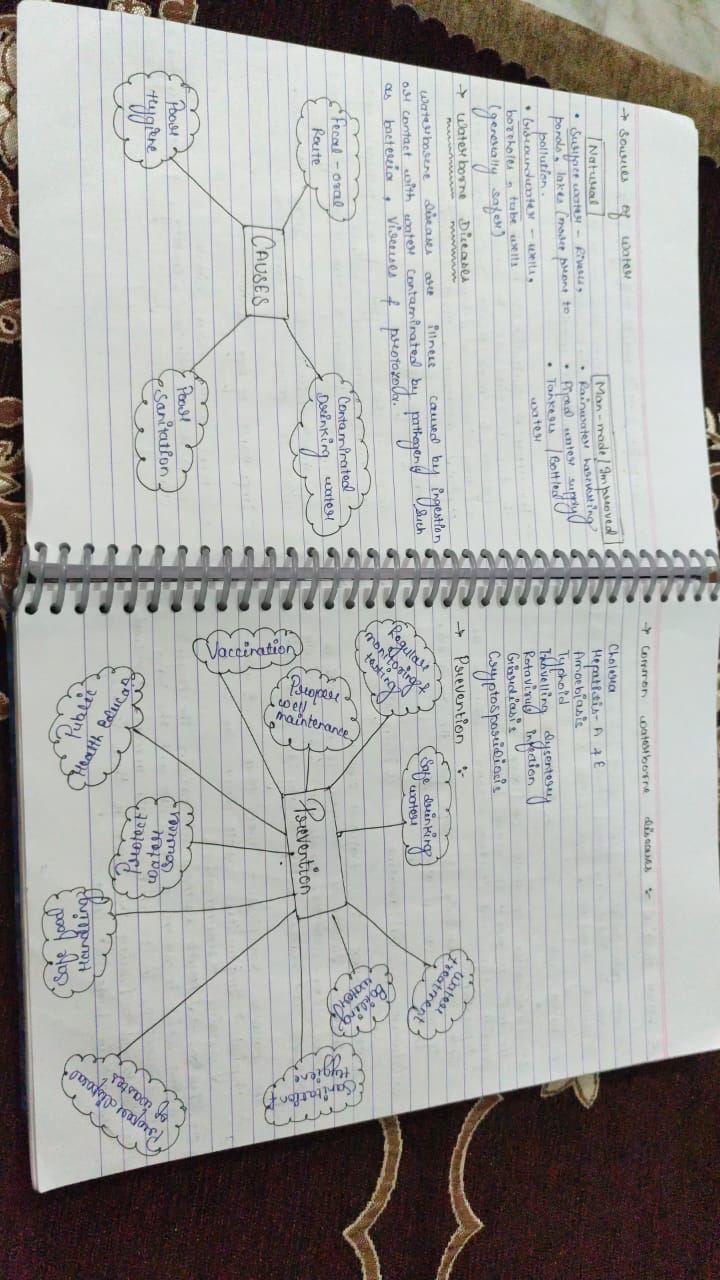 → Sources of water
Natural
• Surface water - Rivers,
ponds, lakes (more prone to
pollution.
• Groundwater - wells,
boreholes, tube wells
(generally safer)
Man-made/Improved
• Rainwater harvesting
• Piped water supply
• Tankers / Bottled
water
→ Waterborne Diseases
Waterborne diseases are illness caused by ingestion
or contact with water contaminated by pathogens such
as bacteria, viruses & protozoa.
Fecal-oral
Route
Contaminated
Drinking water
CAUSES
Poor
Hygiene
Poor
Sanitation
→ Common waterborne diseases :-
Cholera
Hepatitis- A & E
Amoebiasis
Typhoid
Travelling dysentery
Rotavirus infection
Giardiasis
Cryptosporidiosis
→ Prevention :-
Regular
monitoring &
testing
Safe drinking
water
Water
treatment
Boiling
water
Sanitation &
Hygiene
Proper
well
maintenance
Vaccination
Prevention
Public
Health Educat
Protect
water
sources
Safe food
Handling
Proper disposal
of wastes